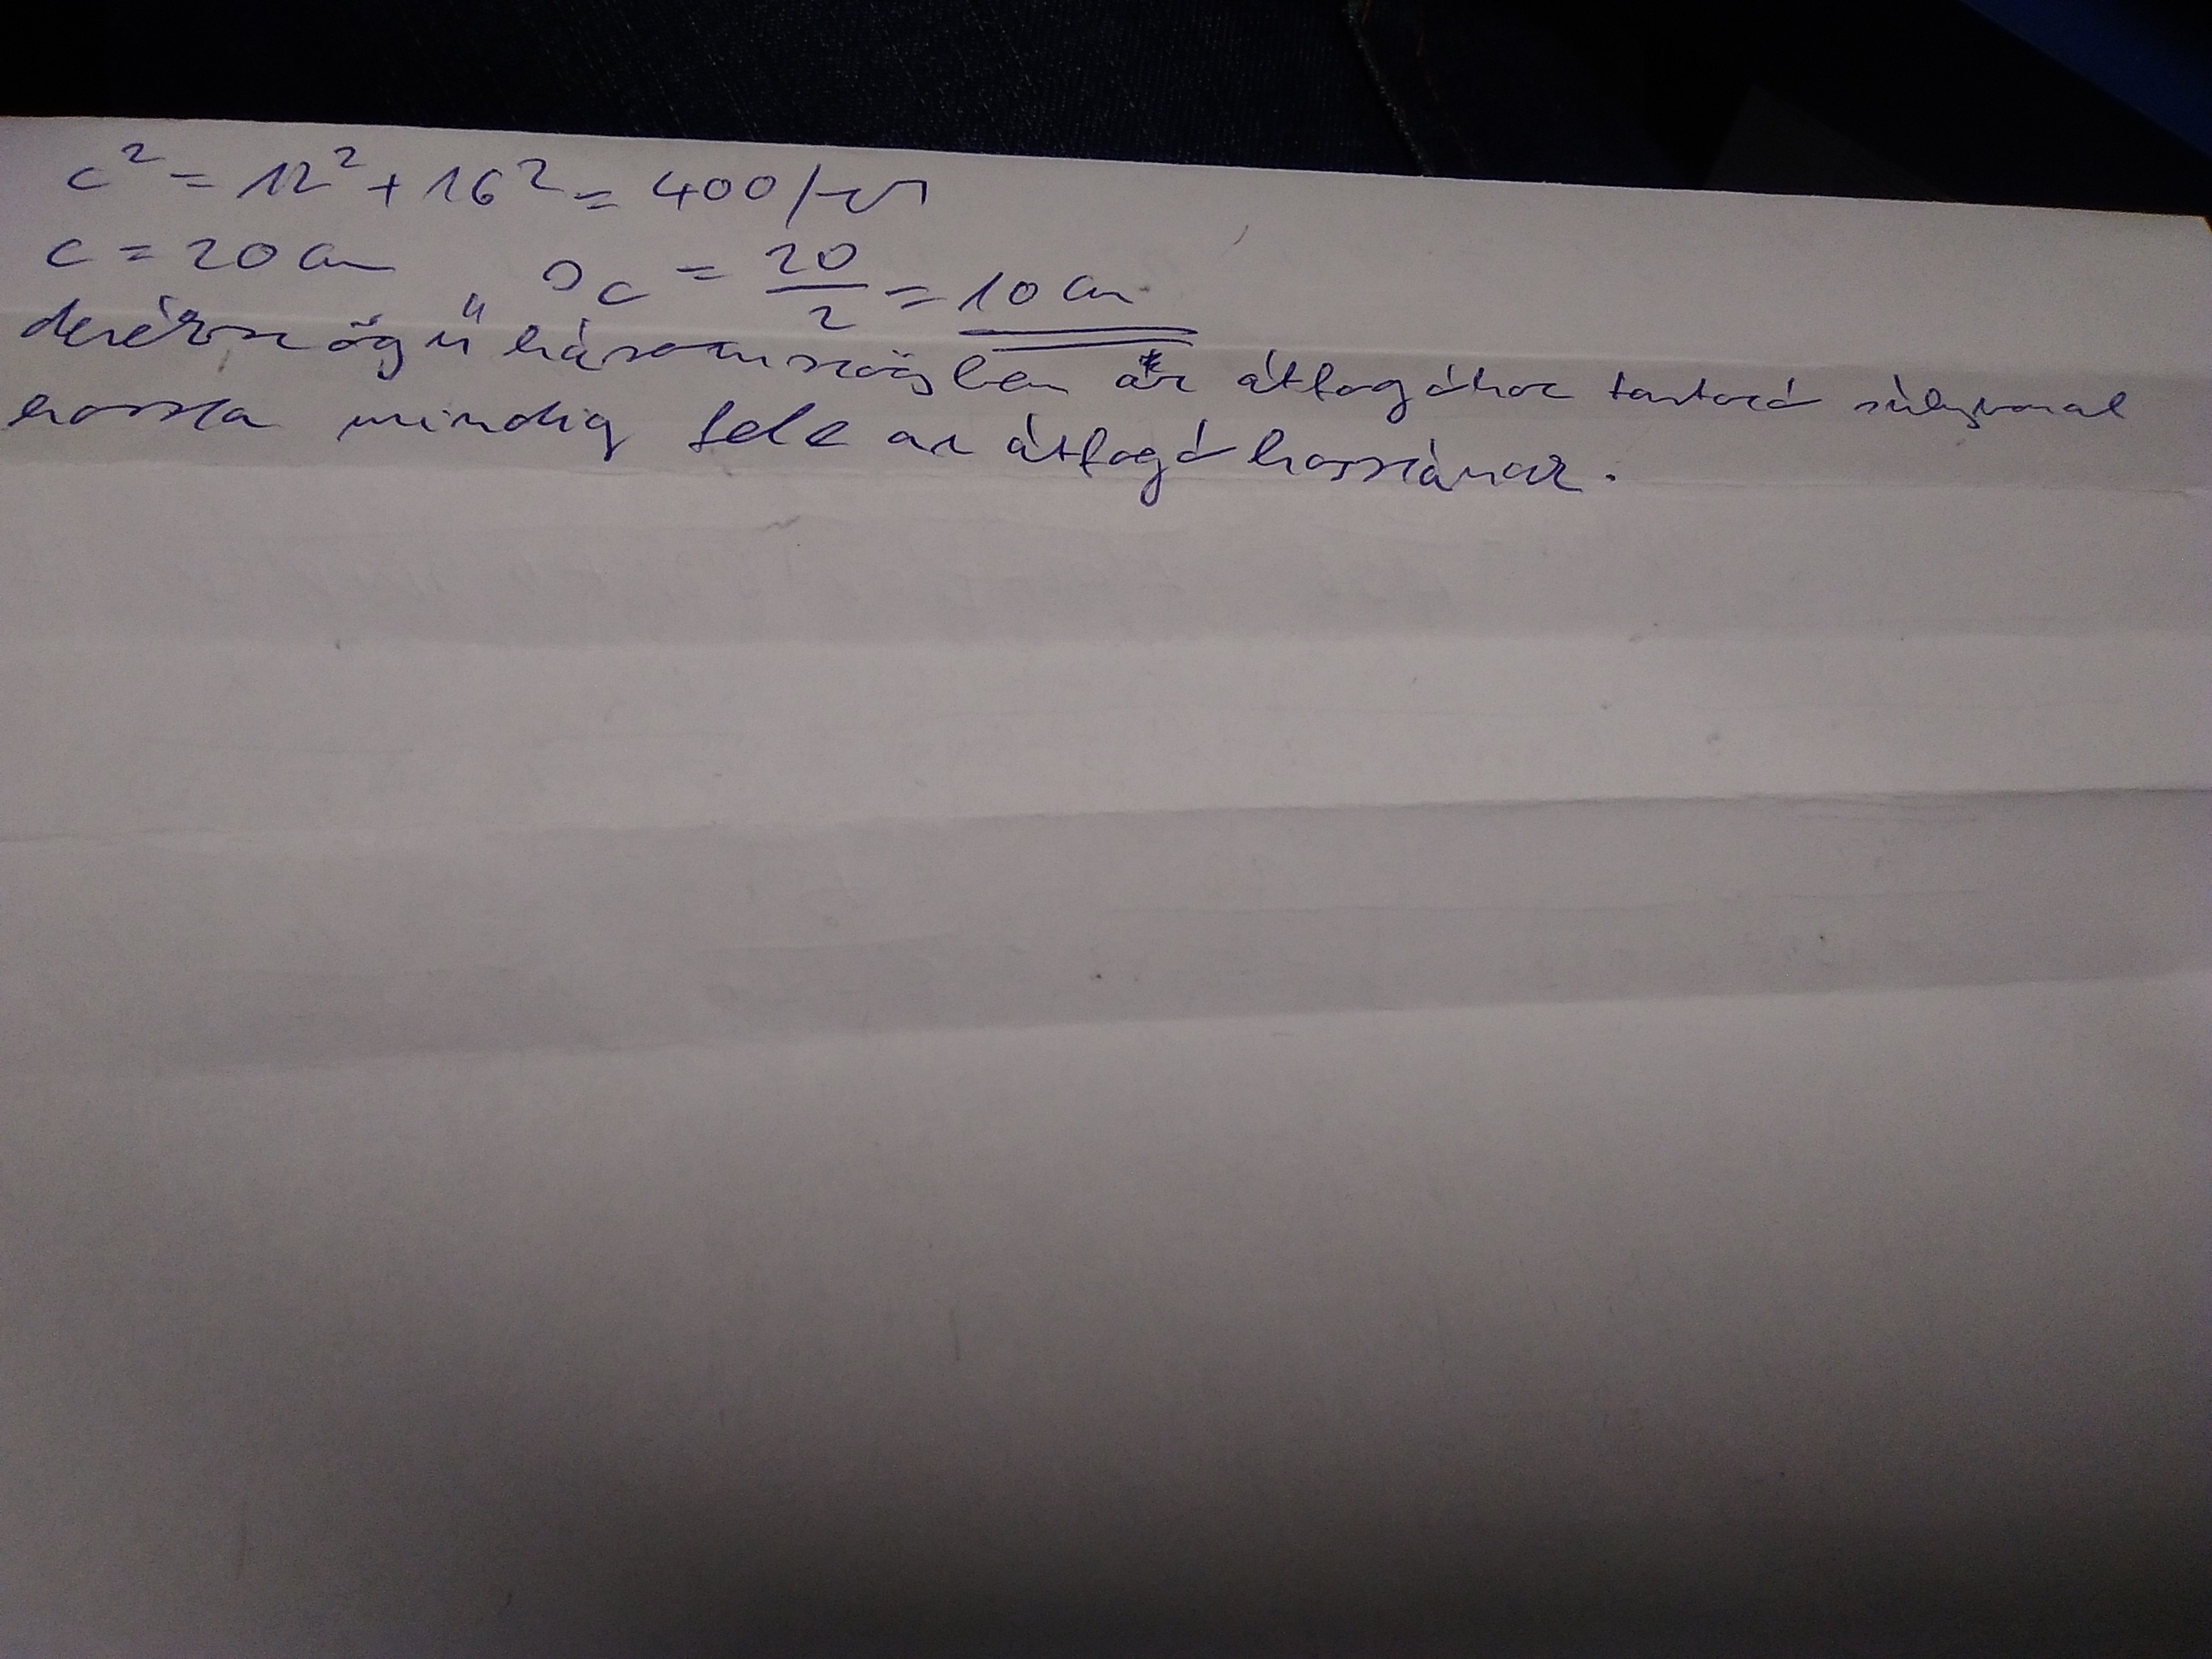 c² = 12² + 16² = 400 /√
c = 20 cm s_c = 20/2 = 10 cm
derékszögű háromszögben az átfogóhoz tartozó súlyvonal
hossza mindig fele az átfogó hosszának.